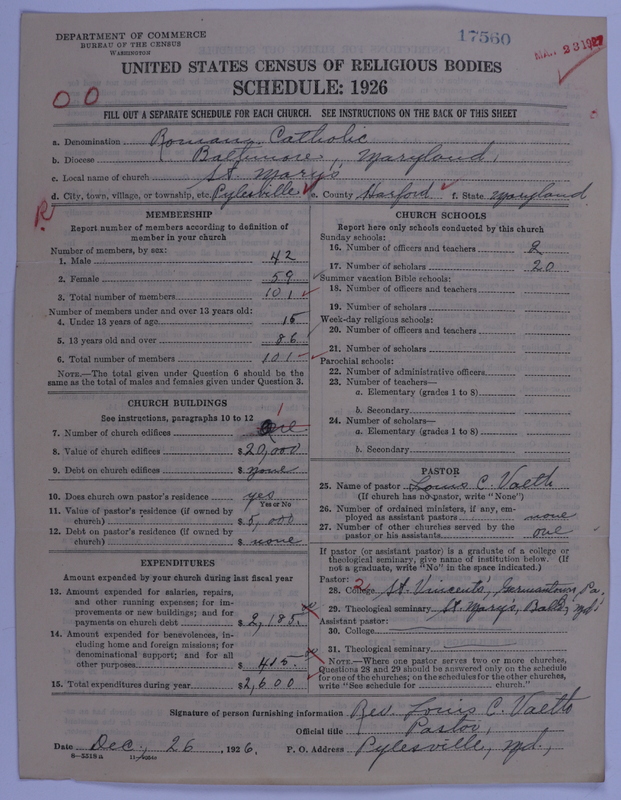 DEPARTMENT OF COMMERCE
BUREAU OF THE CENSUS
WASHINGTON
17560
MAR 23 1927
UNITED STATES CENSUS OF RELIGIOUS BODIES
SCHEDULE: 1926
00
FILL OUT A SEPARATE SCHEDULE FOR EACH CHURCH. SEE INSTRUCTIONS ON THE BACK OF THIS SHEET
a. Denomination Roman Catholic
b. Diocese Baltimore, Maryland,
c. Local name of church St. Mary's
d. City, town, village, or township, etc. Pylesville e. County Harford f. State Maryland
R
MEMBERSHIP
Report number of members according to definition of
member in your church
Number of members, by sex:
1. Male 42
2. Female 59
3. Total number of members 101
Number of members under and over 13 years old:
4. Under 13 years of age 15
5. 13 years old and over 86
6. Total number of members 101
NOTE.—The total given under Question 6 should be the
same as the total of males and females given under Question 3.
CHURCH BUILDINGS
See instructions, paragraphs 10 to 12
1
7. Number of church edifices one
8. Value of church edifices $20,000
9. Debt on church edifices $none
10. Does church own pastor's residence yes
Yes or No
11. Value of pastor's residence (if owned by
church) $5,000
12. Debt on pastor's residence (if owned by
church) $none
EXPENDITURES
Amount expended by your church during last fiscal year
13. Amount expended for salaries, repairs,
and other running expenses; for im-
provements or new buildings; and for
payments on church debt $2,185.00
14. Amount expended for benevolences, in-
cluding home and foreign missions; for
denominational support; and for all
other purposes $415.00
15. Total expenditures during year $2,600
CHURCH SCHOOLS
Report here only schools conducted by this church
Sunday schools:
16. Number of officers and teachers 2
17. Number of scholars 20
Summer vacation Bible schools:
18. Number of officers and teachers
19. Number of scholars
Week-day religious schools:
20. Number of officers and teachers
21. Number of scholars
Parochial schools:
22. Number of administrative officers
23. Number of teachers—
a. Elementary (grades 1 to 8)
b. Secondary
24. Number of scholars—
a. Elementary (grades 1 to 8)
b. Secondary
PASTOR
25. Name of pastor Louis C. Vaeth
(If church has no pastor, write "None")
26. Number of ordained ministers, if any, em-
ployed as assistant pastors none
27. Number of other churches served by the
pastor or his assistants one
If pastor (or assistant pastor) is a graduate of a college or
theological seminary, give name of institution below. (If
not a graduate, write "No" in the space indicated.)
Pastor: 2
28. College St. Vincents, Germantown, Pa.
29. Theological seminary St. Mary's, Balto, Md.
Assistant pastor:
30. College
31. Theological seminary
NOTE.—Where one pastor serves two or more churches,
Questions 28 and 29 should be answered only on the schedule
for one of the churches; on the schedules for the other churches,
write "See schedule for church."
Signature of person furnishing information Rev. Louis C. Vaeth
Official title Pastor,
Date Dec, 26, 1926. P. O. Address Pylesville, Md.,
8—5518a